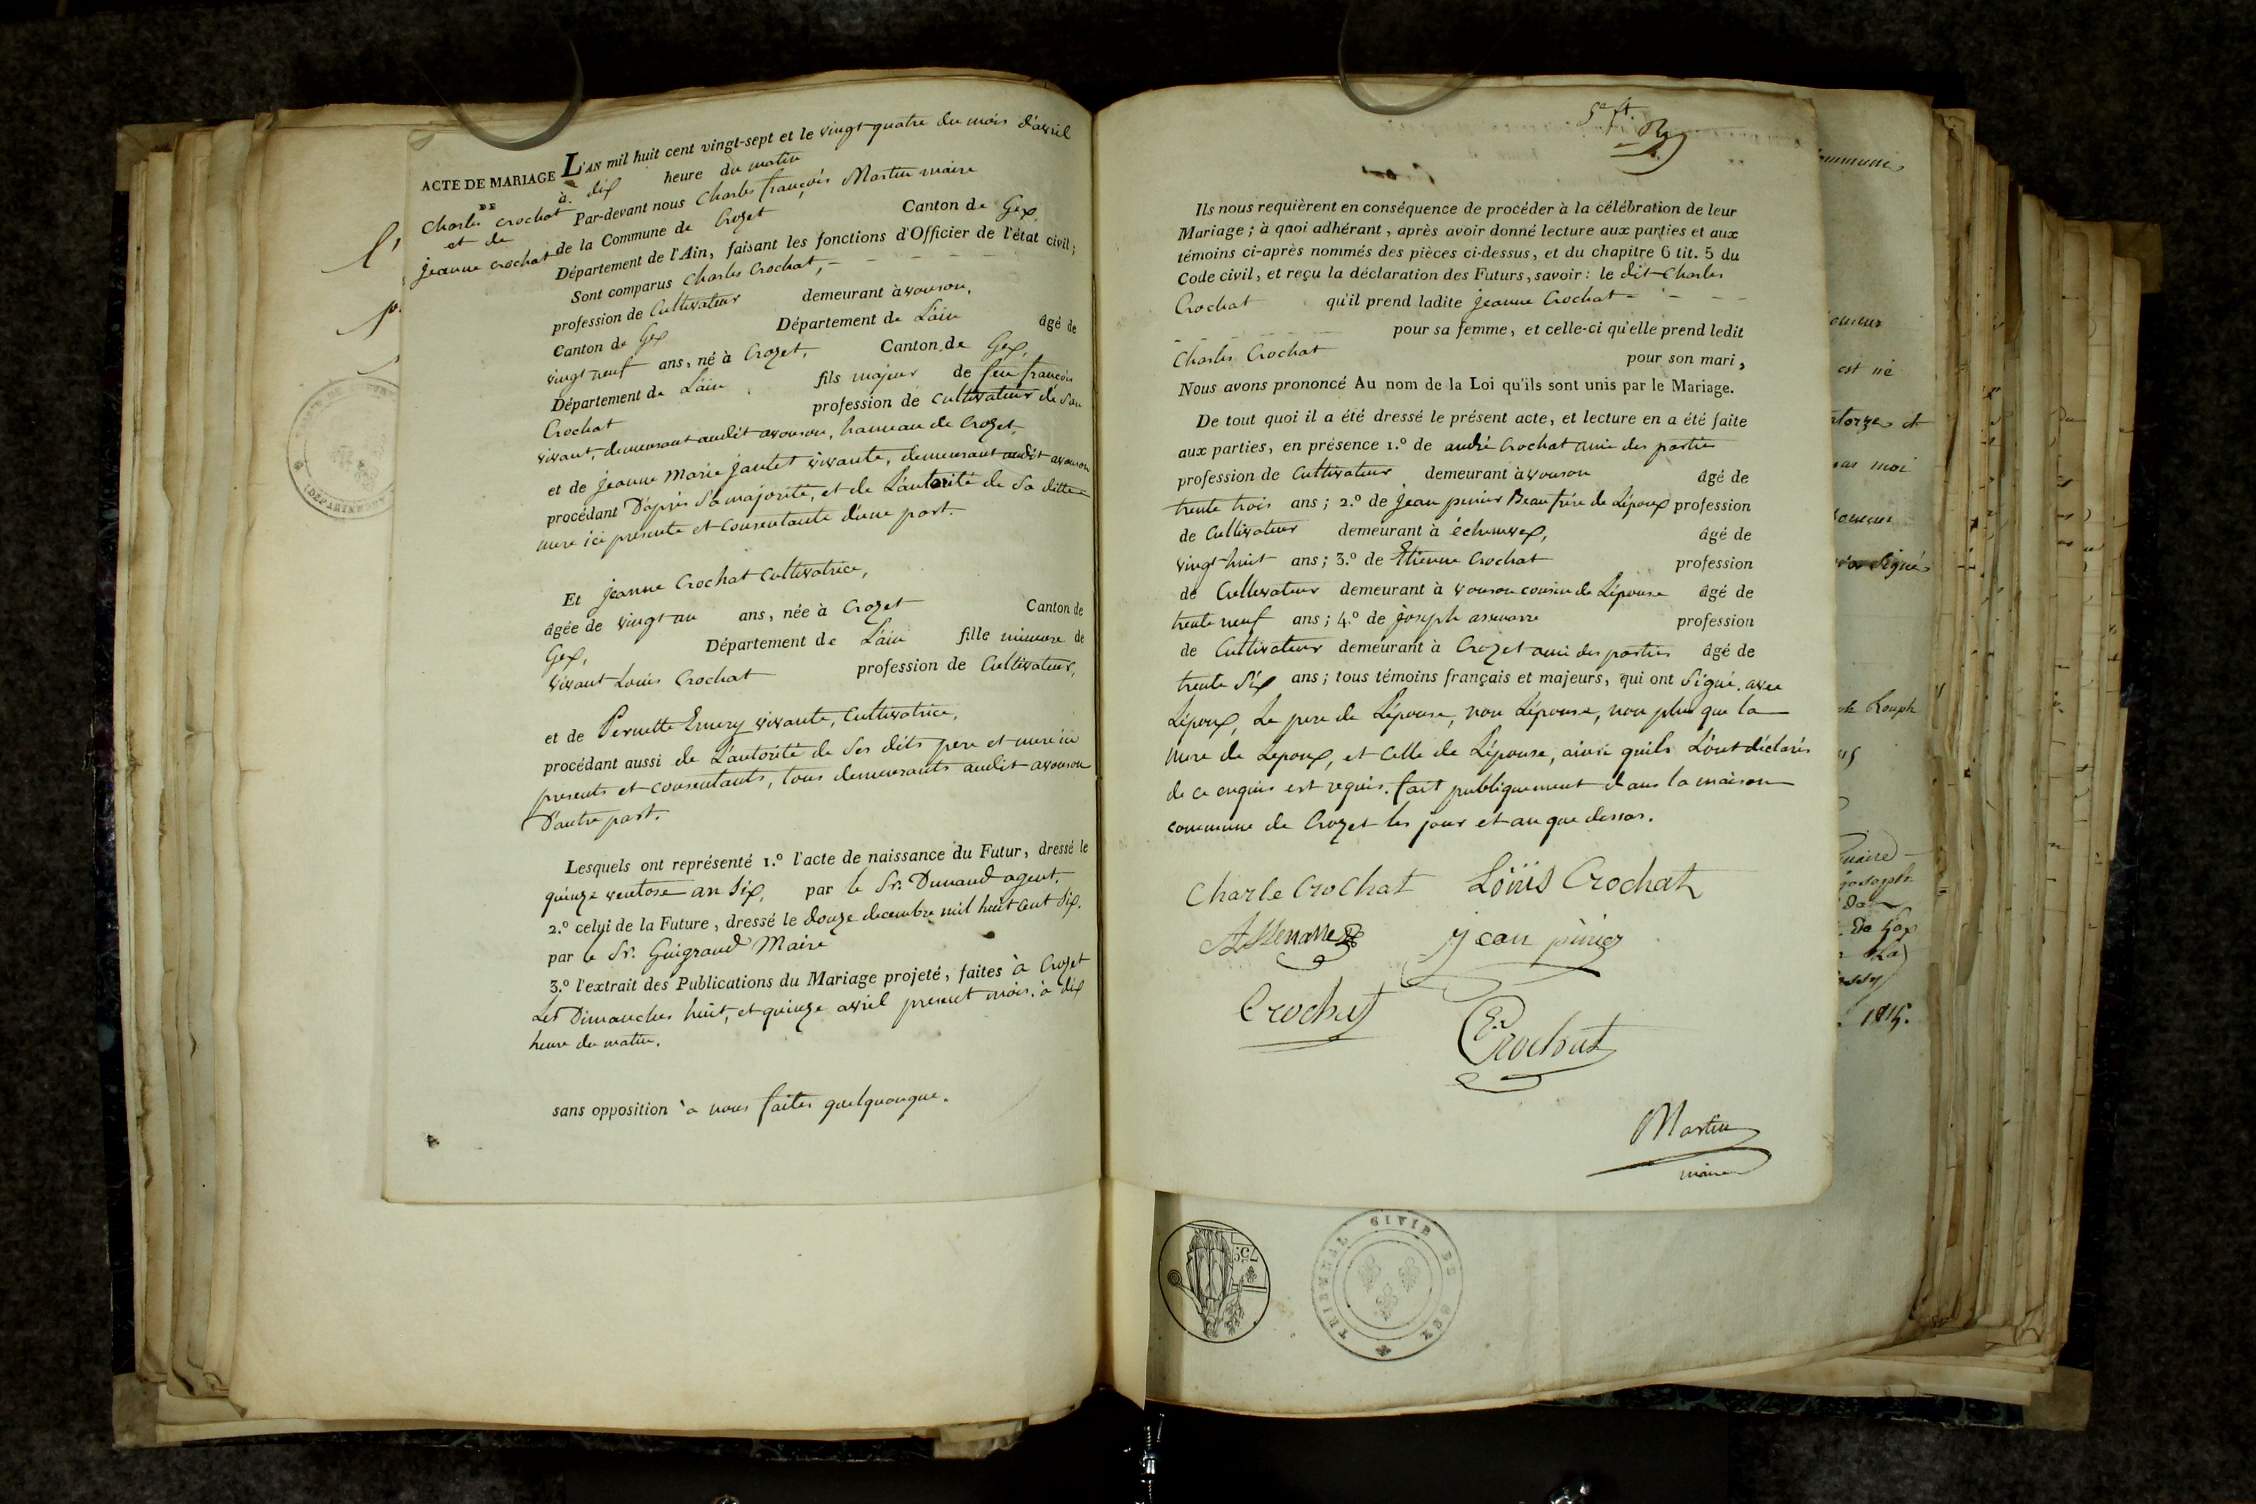 ACTE DE MARIAGE
DE
Charles Crochat
et de
jeanne crochat
L'AN mil huit cent vingt-sept et le vingt quatre du mois d'avril
à dix heure du matin
Par-devant nous Charles françois Martin maire
de la Commune de Crozet Canton de Gex
Département de l'Ain, faisant les fonctions d'Officier de l'état civil;
Sont comparus Charles Crochat,
profession de Cultivateur demeurant à vouson,
Canton de Gex Département de L'ain âgé de
vingt neuf ans, né à Crozet, Canton de Gex,
Département de L'ain fils majeur de feu françois
Crochat profession de cultivateur de son
vivant, demeurant audit avouson, hameau de Crozet,
et de jeanne Marie jantet vivante, demeurant audit avouson
procédant D'après sa majorité, et de L'autorité de sa ditte
mere ici presente et consentante d'une part.
Et jeanne Crochat cultivatrice,
âgée de vingt un ans, née à Crozet Canton de
Gex, Département de L'ain fille mineure de
vivant Louis Crochat profession de Cultivateur,
et de Pernette Emery vivante, Cultivatrice,
procédant aussi de L'autorité de ses dits pere et mere ici
presents et consentants, tous demeurants audit avouson
D'autre part.
Lesquels ont représenté 1.º l'acte de naissance du Futur, dressé le
quinze ventose an six, par le Sr. Dunand agent.
2.º celui de la Future, dressé le douze decembre mil huit cent six.
par le Sr. Guigrand Maire
3.º l'extrait des Publications du Mariage projeté, faites à Crozet
Les Dimanches huit, et quinze avril present mois, à dix
heure du matin.
sans opposition à nous faites quelquonque.
5e ft.
Ils nous requièrent en conséquence de procéder à la célébration de leur
Mariage; à quoi adhérant, après avoir donné lecture aux parties et aux
témoins ci-après nommés des pièces ci-dessus, et du chapitre 6 tit. 5 du
Code civil, et reçu la déclaration des Futurs, savoir: le dit Charles
Crochat qu'il prend ladite jeanne Crochat
pour sa femme, et celle-ci qu'elle prend ledit
Charles Crochat pour son mari,
Nous avons prononcé Au nom de la Loi qu'ils sont unis par le Mariage.
De tout quoi il a été dressé le présent acte, et lecture en a été faite
aux parties, en présence 1.º de andré Crochat amie des partie
profession de Cultivateur demeurant à vouson âgé de
trente trois ans; 2.º de jean perrier Beaufrère de L'époux profession
de Cultivateur demeurant à échenvex, âgé de
vingt huit ans; 3.º de Etienne Crochat profession
de Cultivateur demeurant à vouson cousin de L'épouse âgé de
trente neuf ans; 4.º de joseph assenarre profession
de Cultivateur demeurant à Crozet ami des parties âgé de
trente six ans; tous témoins français et majeurs, qui ont signé. avec
L'époux, Le pere de L'épouse, non L'épouse, non plus que la
mere de L'epoux, et celle de L'épouse, ainsi quils L'ont déclarés
de ce enquis et requis. fait publiquement dans la maison
commune de Crozet les jour et an que dessus.
Charle Crochat Löuis Crochat
jean
Crochat
Crochat
Martin
maire
TRIBUNAL CIVIL DE GEX